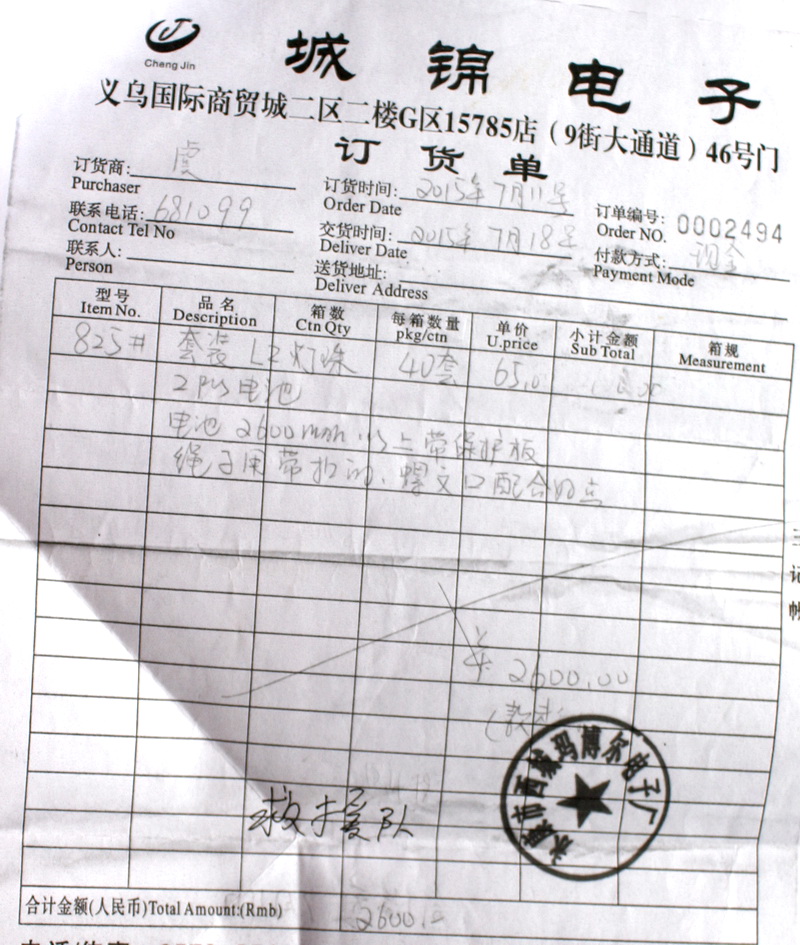 Cheng Jin
城锦电子
义乌国际商贸城二区二楼G区15785店（9街大通道）46号门
订货单
订货商: 虎
Purchaser
订货时间: 2015年7月11号
Order Date
订单编号: 0002494
Order NO.
联系电话: 681099
Contact Tel No
交货时间: 2015年7月18号
Deliver Date
付款方式: 现金
Payment Mode
联系人:
Person
送货地址:
Deliver Address
型号 品名 箱数 每箱数量 单价 小计金额 箱规
Item No. Description Ctn Qty pkg/ctn U.price Sub Total Measurement
825# 套装 L2灯珠 40套 65.0
2PCS电池
电池2600mAh以上带保护板
绳子用带扣的、螺文口配合好点
¥ 2600.00
西城玛博尔电子厂
救援队
合计金额(人民币)Total Amount:(Rmb) 2600.-
三
记
帐